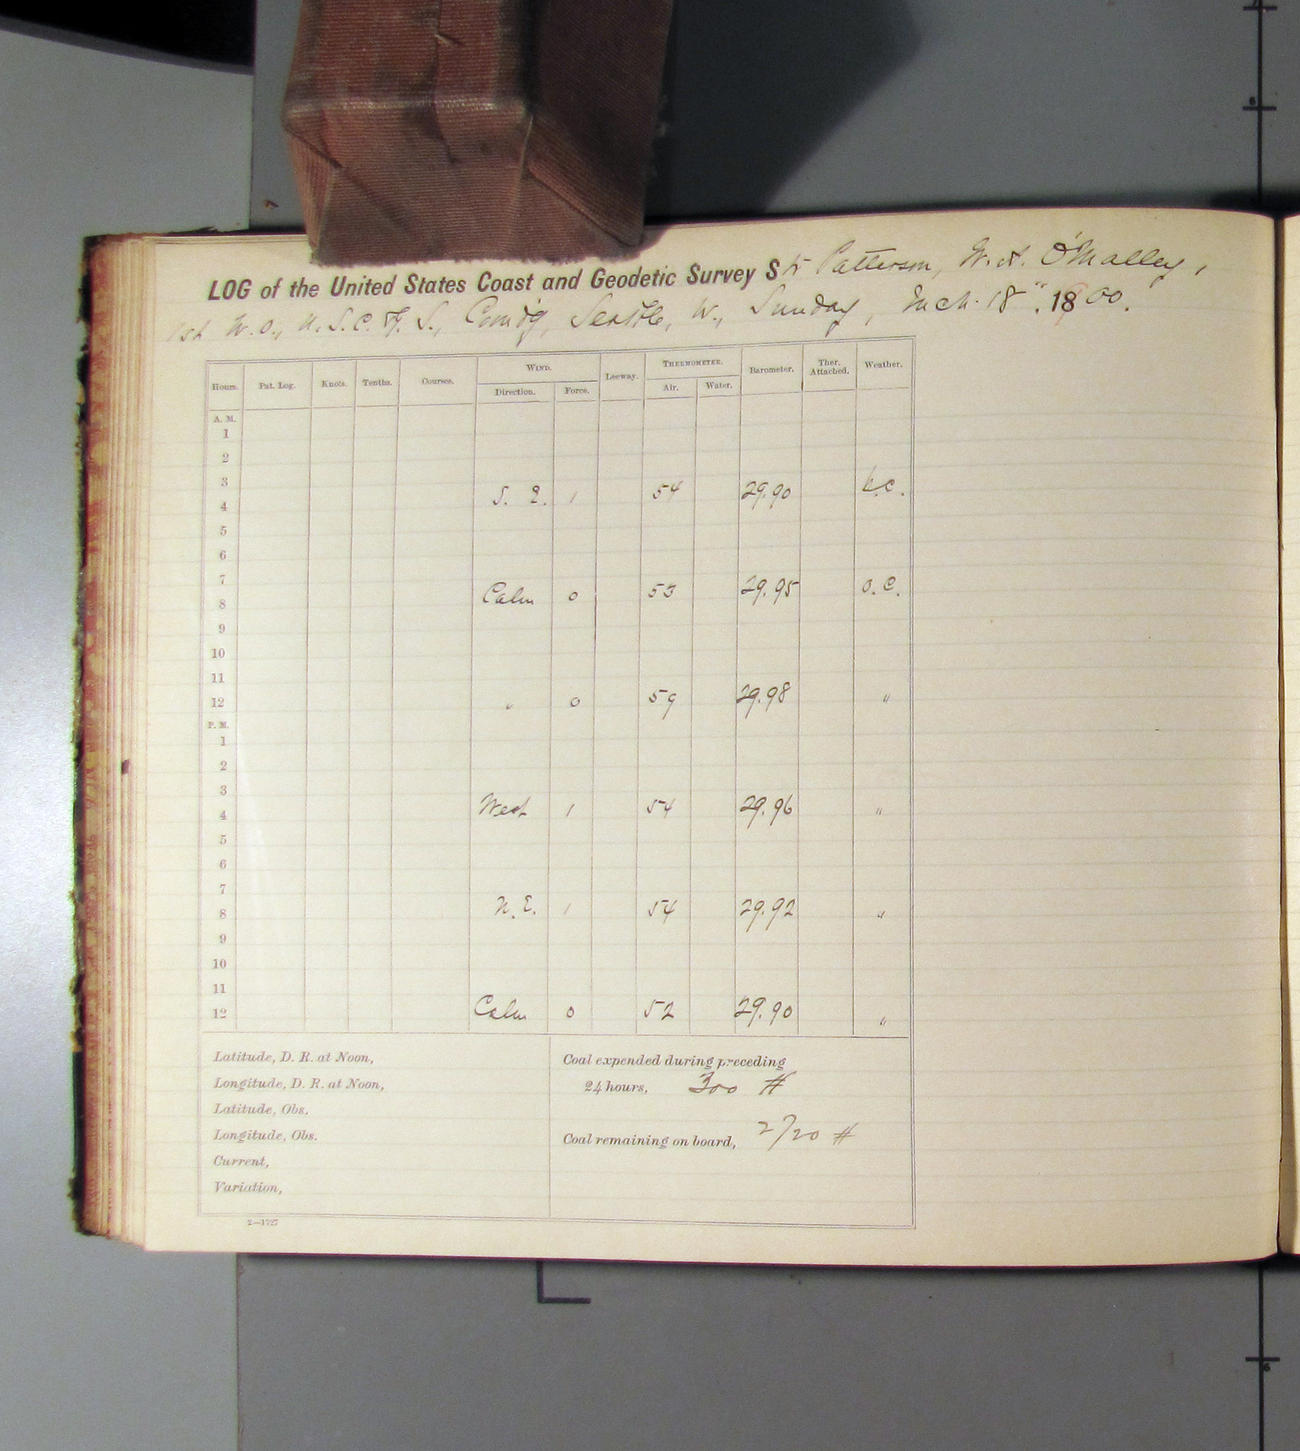 LOG of the United States Coast and Geodetic Survey Str Patterson, W. A. O'Malley,
1st W. O., U. S. C. & G. S., Comd'g, Seattle, W., Sunday, Mch. 18", 1900.
Hours. Pat. Log. Knots. Tenths. Courses. WIND. Leeway. THERMOMETER. Barometer. Ther. Attached. Weather.
Direction. Force. Air. Water.
A. M.
1
2
3
4 S. E. 1 54 29.90 b.c.
5
6
7
8 Calm 0 53 29.95 o.c.
9
10
11
12 " 0 59 29.98 "
P. M.
1
2
3
4 West 1 54 29.96 "
5
6
7
8 N. E. 1 54 29.92 "
9
10
11
12 Calm 0 52 29.90 "
Latitude, D. R. at Noon,
Longitude, D. R. at Noon,
Latitude, Obs.
Longitude, Obs.
Current,
Variation,
Coal expended during preceding
24 hours, 300 #
Coal remaining on board, 2720 #
2—1727